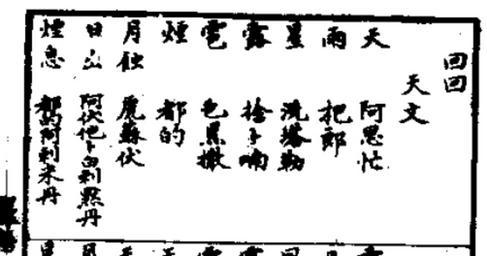 回回
天文
天 阿思忙
雨 把郎
星 洗塔勒
露 捨卜喃
雹 色黑撒
煙 都的
月蝕 虎蘇伏
日出 阿伏他卜白剌默丹
煙息 都的阿剌米丹